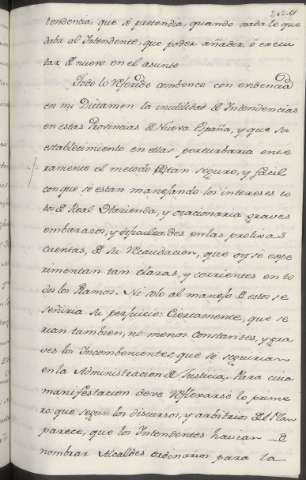 tendencia que se pretendia, quando nada le que
daba al Intendente, que poder añadir, ó executar
tar de nuevo en el asunto
Todo lo referido combence con evidencia
en mi Dictamen la inutilidad de Intendencias
en estas Provincias de Nueva España, y que su
establecimiento en ellas perturbaria ente
ramente el methodo tan seguro, y facil
con que se estan manejando los intereses to
dos de Real Hacienda, y ocacionaria graves
embarazos, y dificultades en las prolixas
cuentas, de su Recaudacion, que oy se expe
rimentan tan claras, y corrientes en to
dos los Ramos. Ni solo al manejo de estos se
señiria su perjuicio: Ciertamente, que se
rian tambien, no menos constantes, y gra
ves los Incombenientes que se seguirian
en la Administracion de Justicia, Para cuia
manifestacion deve reflexarse lo prime
ro: que segun los discursos, y arbitrios del Plan
parece, que los Intendentes havian de
nombrar Alcaldes ordinarios para la